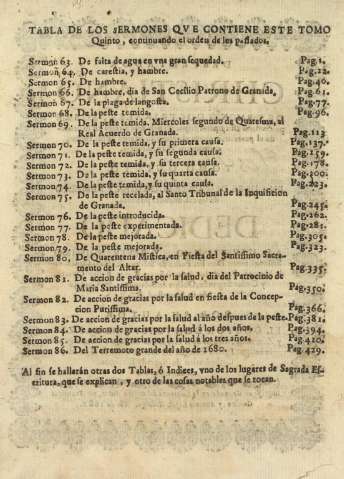 TABLA DE LOS SERMONES QVE CONTIENE ESTE TOMO
Quinto, continuando el orden de los passados.
Sermon 63. De falta de agua en vna gran sequedad. Pag.1.
Sermon 64. De carestia, y hambre. Pag.22.
Sermon 65. De hambre. Pag.40.
Sermon 66. De hambre, dia de San Cecilio Patrono de Granada, Pag.61.
Sermon 67. De la plaga de langosta. Pag.77.
Sermon 68. De la peste temida. Pag.96.
Sermon 69. De la peste temida, Miercoles segundo de Quaresma, al
Real Acuerdo de Granada. Pag.113
Sermon 70. De la peste temida, y su primera causa. Pag.137.
Sermon 71. De la peste temida, y su segunda causa. Pag.159.
Sermon 72. De la peste temida, y su tercera causa. Pag.178.
Sermon 73. De la peste temida, y su quarta causa. Pag.200.
Sermon 74. De la peste temida, y su quinta causa. Pag.223.
Sermon 75. De la peste recelada, al Santo Tribunal de la Inquisicion
de Granada. Pag.245.
Sermon 76. De la peste introducida. Pag.262.
Sermon 77. De la peste experimentada. Pag.281.
Sermon 78. De la peste mejorada. Pag.305.
Sermon 79. De la peste mejorada. Pag.323.
Sermon 80. De Quarentena Mistica, en Fiesta del Santissimo Sacra-
mento del Altar. Pag.335.
Sermon 81. De accion de gracias por la salud, dia del Patrocinio de
Maria Santissima. Pag.350.
Sermon 82. De accion de gracias por la salud en fiesta de la Concep-
cion Purissima. Pag.366.
Sermon 83. De accion de gracias por la salud al año despues de la peste. Pag.381.
Sermon 84. De accion de gracias por la salud à los dos años. Pag.394.
Sermon 85. De accion de gracias por la salud à los tres años. Pag.410.
Sermon 86. Del Terremoto grande del año de 1680. Pag.429.
Al fin se hallarán otras dos Tablas, ó Indices, vno de los lugares de Sagrada Es-
critura, que se explican, y otro de las cosas notables que se tocan.